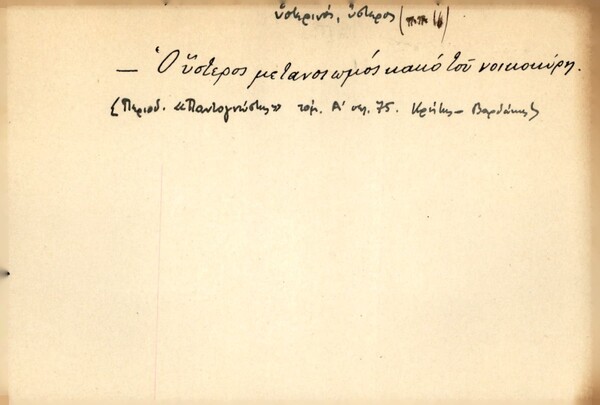 ὑστερινός, ὕστερος
— Ὁ ὕστερος μετανοιωμός κακό τοῦ νοικοκύρη.
(Περιοδ. «Παντογνώστης» τομ. Α' σελ. 75. Κρήτης – Βαρδάκης)